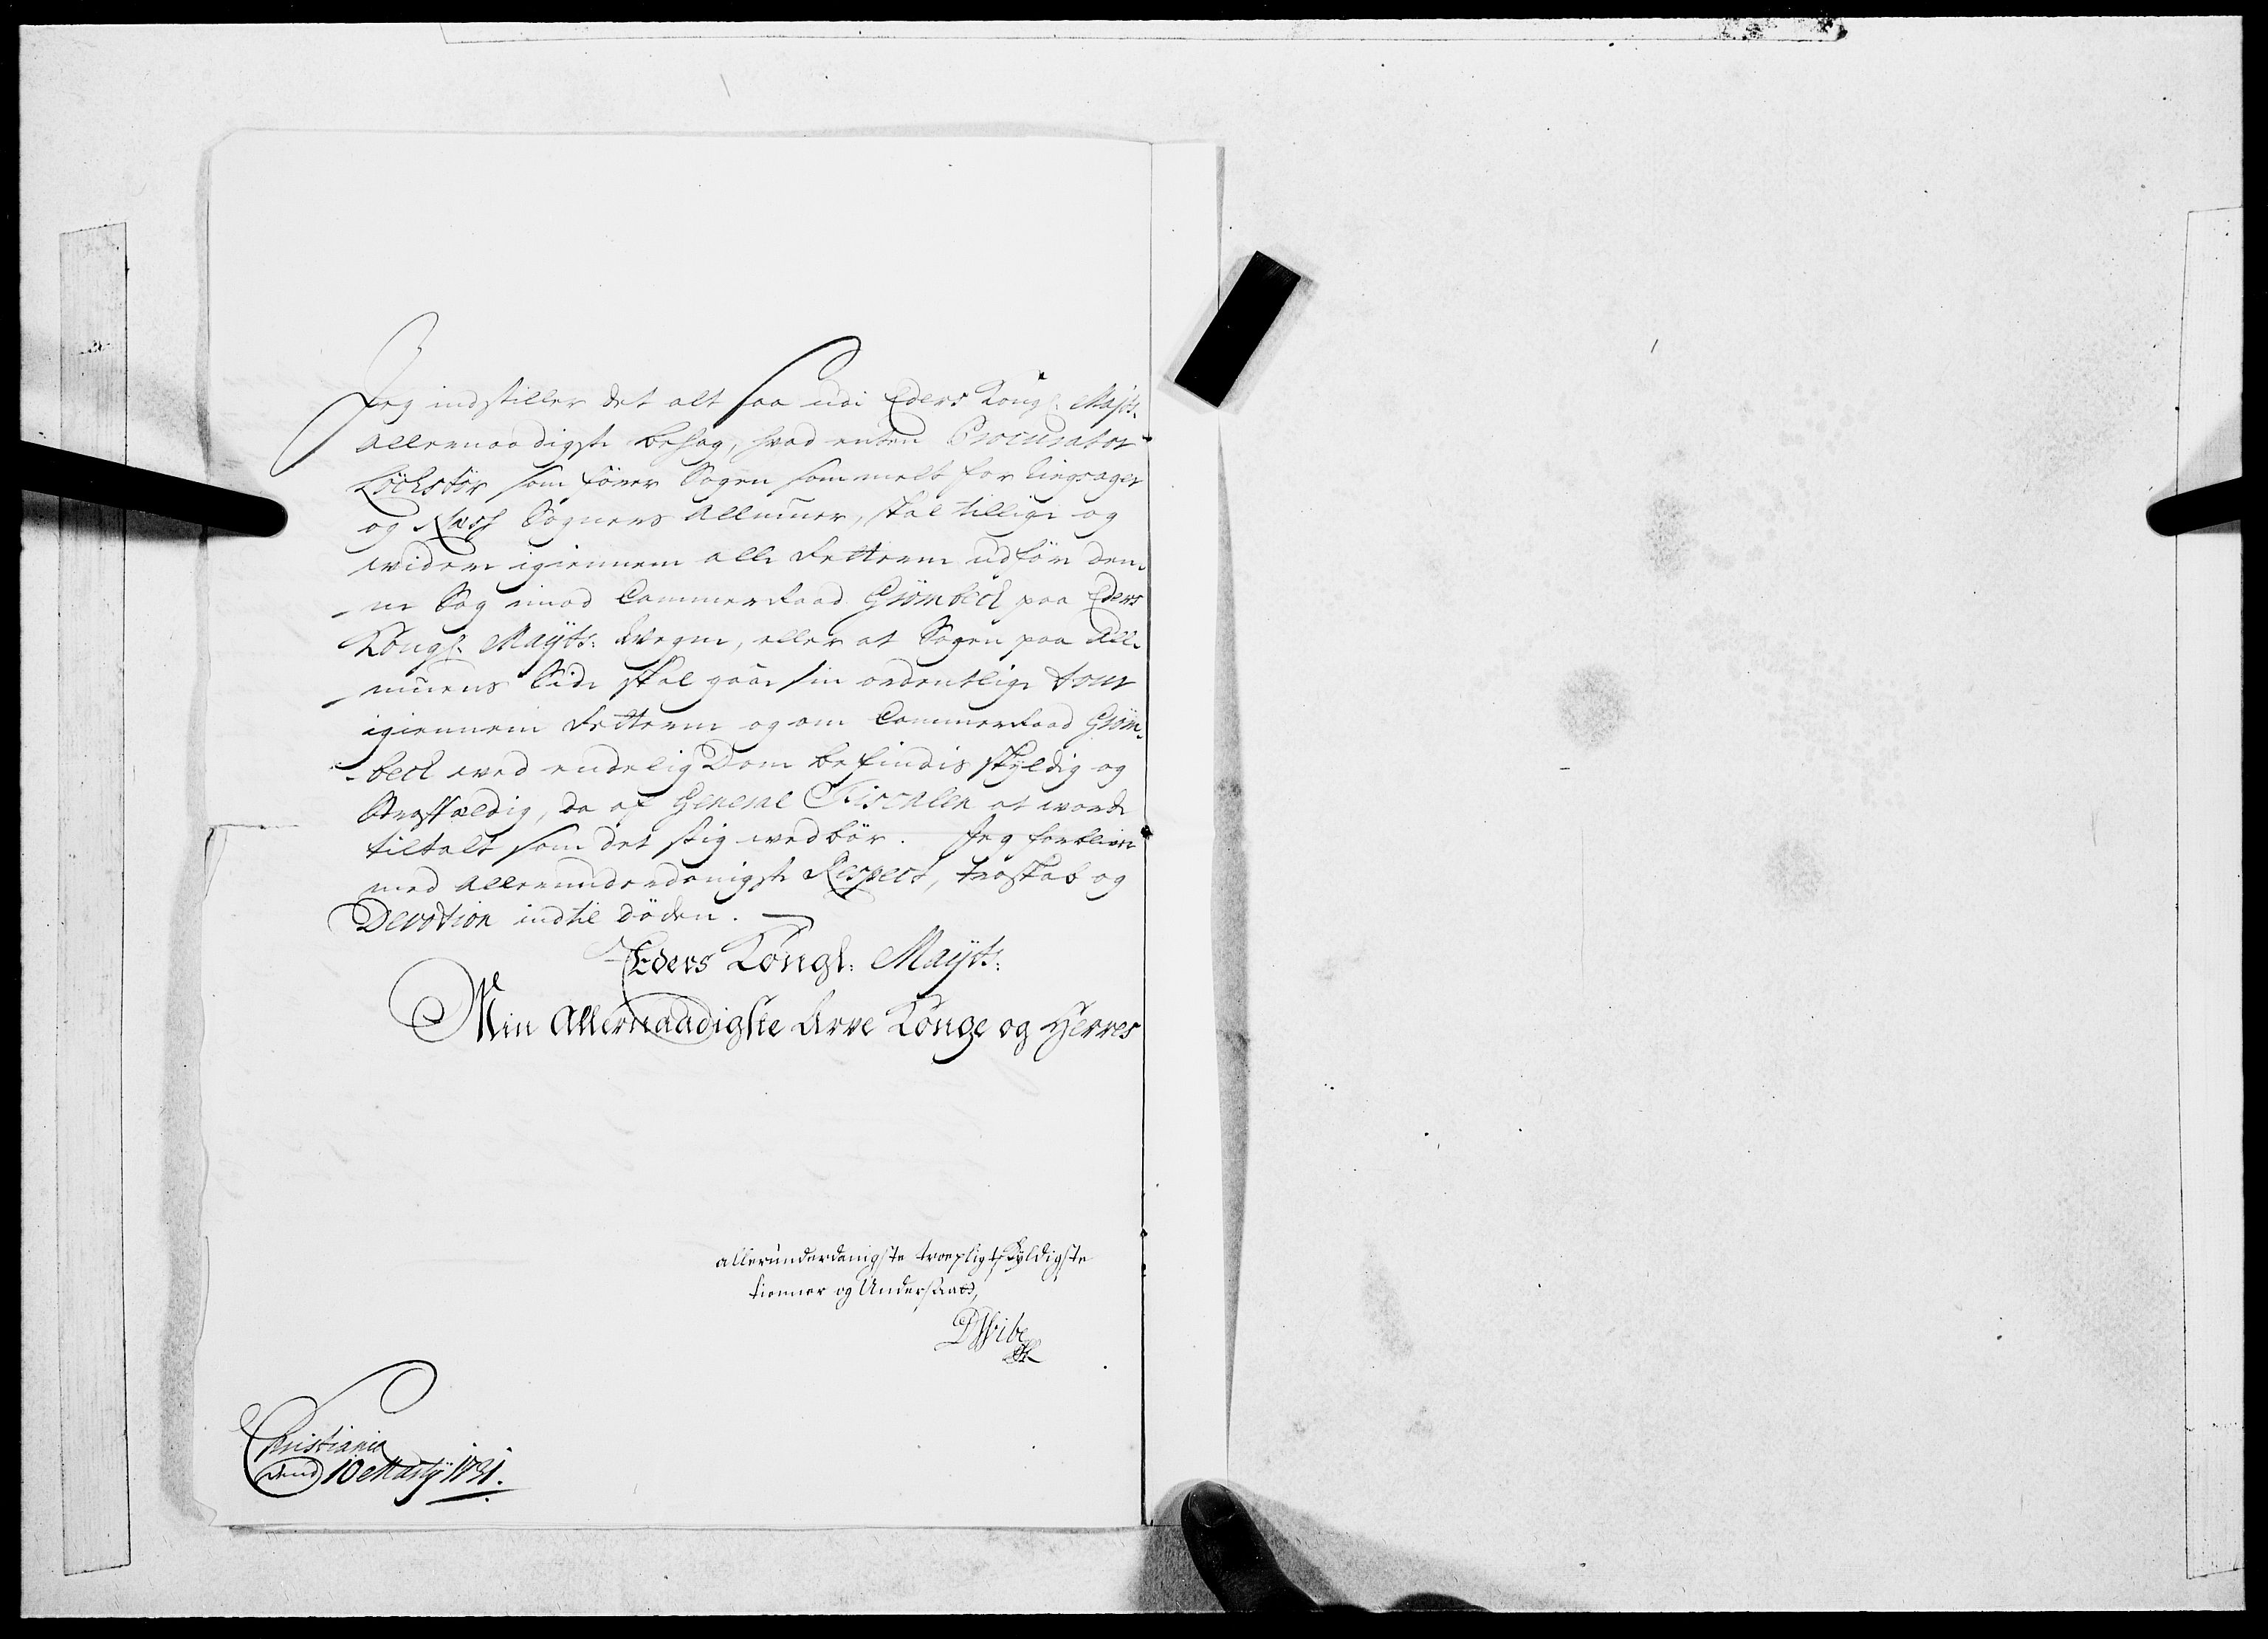 Jeg indstiller det alt saa udi Eders Kongl: Mayts:
Allernaadigste behag, hvad enten Procurator
Löchstör som fører Sagen sammelt for
og Næss Sogners Allmuer, skal tillige og
widere igiennem alle Retterne udføre den-
ne Sag imod Cammerraad Grönbech paa Eders
Kongl: Mayts: Wegne, eller at Sagen paa All-
muens Side skal gaae sin ordentlige tour
igiennem Retterne og om Cammerraad Grön-
bech wed endelig Dom befindis skyldig og
Straffældig, da af General Fiscalen at worde
tiltalt som det sig wedbör. Jeg forbliver
med Allerunderdanigste Respect, troskab og
Devotion indtil döden.
Eders Kongl: Mayts:
Min Allernaadigste Arve Konge og Herres
allerunderdanigste troepligtskyldigste
tienner og Undersaatt,
DWibe
Christiania
dend 10 Marty 1731.